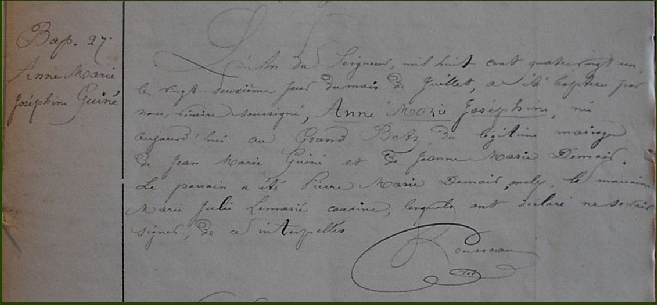 Bap. 27.
Anne Marie
Joséphine Guiné
L'An du Seigneur, mil huit cent quatre vingt un,
le vingt deuxième jour du mois de Juillet, a été baptisée par
nous, vicaire soussigné, Anne Marie Joséphine, née
aujourd'hui au Grand Batz du légitime mariage
de Jean Marie Guiné et de Jeanne Marie Demais.
Le parrain a été Pierre Marie Demais, la marraine
Marie Julie Limarié cousine, lesquels ont déclaré ne savoir
signer, de ce interpellés